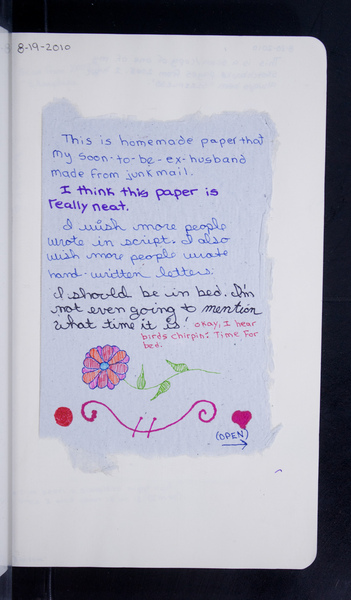 8-19-2010
This is homemade paper that
my soon-to-be-ex-husband
made from junkmail.
I think this paper is
really neat.
I wish more people
wrote in script. I also
wish more people wrote
hand-written letters.
I should be in bed. I'm
not even going to mention
what time it is! okay, I hear
birds chirpin: Time for
bed.
(OPEN)